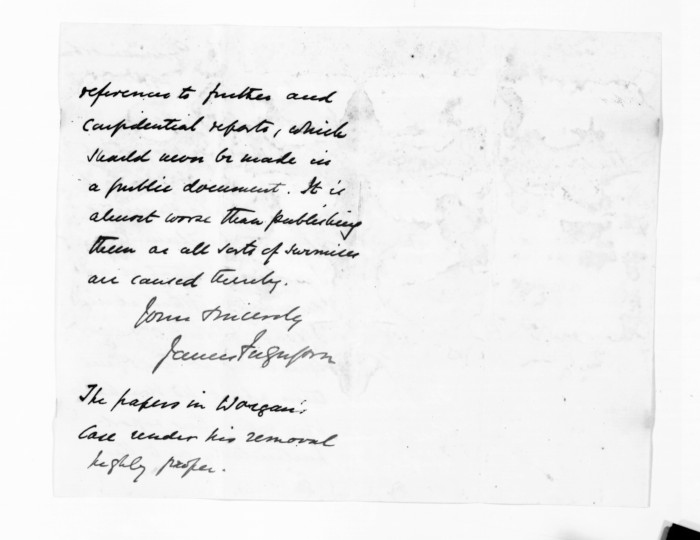 reference to further and
confidential reports, which
should never be made in
a public document. It is
almost worse than publishing
them as all sorts of surmises
are caused thereby.
Yours sincerely
James Fergusson
The papers in Worgan's
case render his removal
highly proper.